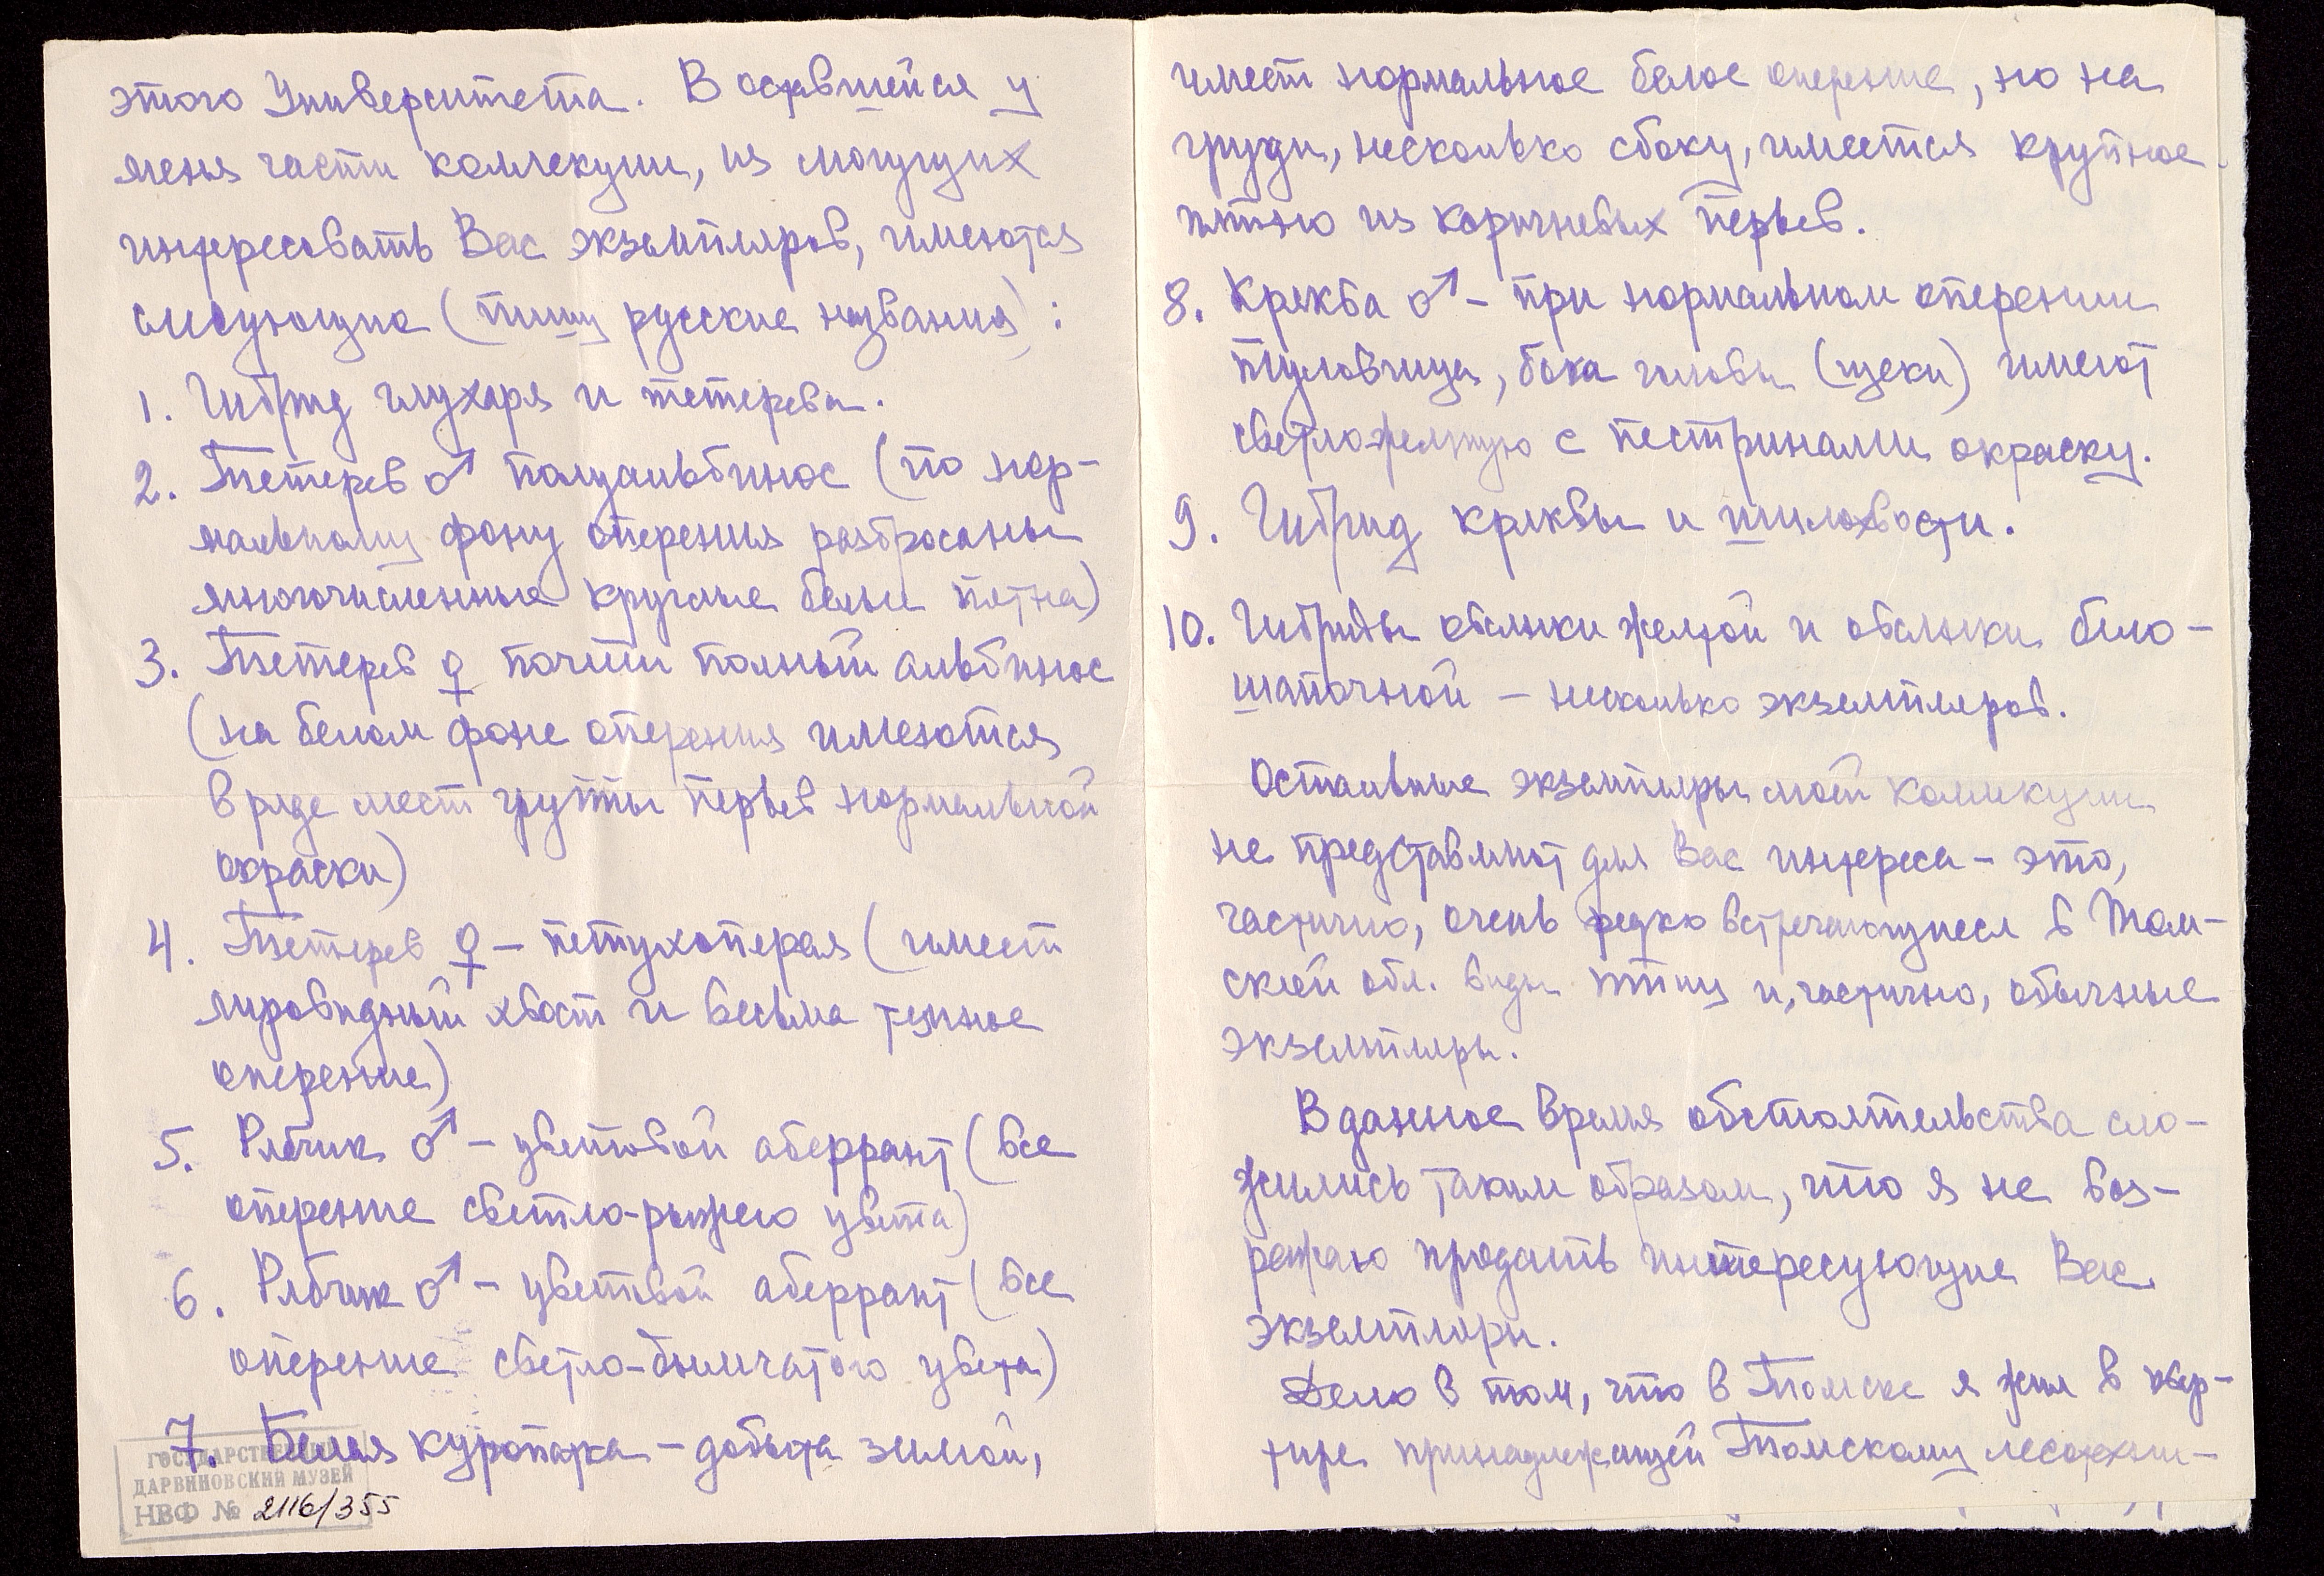 этого Университета. В оставшейся у
меня части коллекции, из могущих
интересовать Вас экземпляров, имеются
следующие (пишу русские названия):
1. Гибрид глухаря и тетерева.
2. Тетерев ♂ полуальбинос (по нор-
мальному фону оперения разбросаны
многочисленные круглые белые пятна)
3. Тетерев ♀ почти полный альбинос
(на белом фоне оперения имеются
в ряде мест группы перьев нормальной
окраски)
4. Тетерев ♀ – петухоперая (имеет
лировидный хвост и весьма темное
оперение)
5. Рябчик ♂ – цветовой аберрант (все
оперение светло-рыжего цвета)
6. Рябчик ♂ – цветовой аберрант (все
оперение светло-дымчатого цвета)
7. Белая куропатка – добыта зимой,
ГОСУДАРСТВЕННЫЙ
ДАРВИНОВСКИЙ МУЗЕЙ
НВФ № 2116/355
имеет нормальное белое оперение, но на
груди, несколько сбоку, имеется крупное
пятно из коричневых перьев.
8. Кряква ♂ – при нормальном оперении
туловища, бока головы (щеки) имеют
светложелтую с пестринами окраску.
9. Гибрид кряквы и шилохвости.
10. Гибриды овсянки желтой и овсянки бело-
шапочной – несколько экземпляров.
Остальные экземпляры моей коллекции
не представляют для Вас интереса – это,
частично, очень редко встречающиеся в Том-
ской обл. виды птиц и, частично, обычные
экземпляры.
В данное время обстоятельства сло-
жились таким образом, что я не воз-
ражаю продать интересующие Вас
экземпляры.
Дело в том, что в Томске я жил в квар-
тире принадлежащей Томскому лесохим-